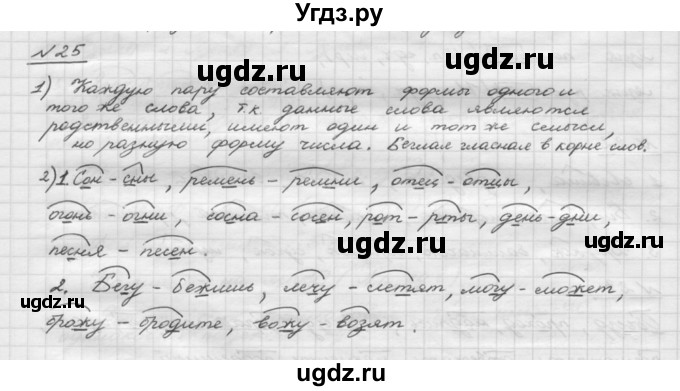 Угдз.ру
№25
1) Каждую пару составляют формы одного и
того же слова, т.к данные слова являются
родственными, имеют один и тот же смысл,
но разную форму числа. Беглая гласная в корне слов.
2) 1. Сон - сны, ремень - ремни, отец - отцы,
огонь - огни, сосна - сосен, рот - рты, день - дни,
песня - песен.
2. Бегу - бежишь, лечу - летят, могу - может,
брожу - бродите, вожу - возят.
ugdz.ru ugdz.ru ugdz.ru
ugdz.ru ugdz.ru ugdz.ru
ugdz.ru ugdz.ru ugdz.ru